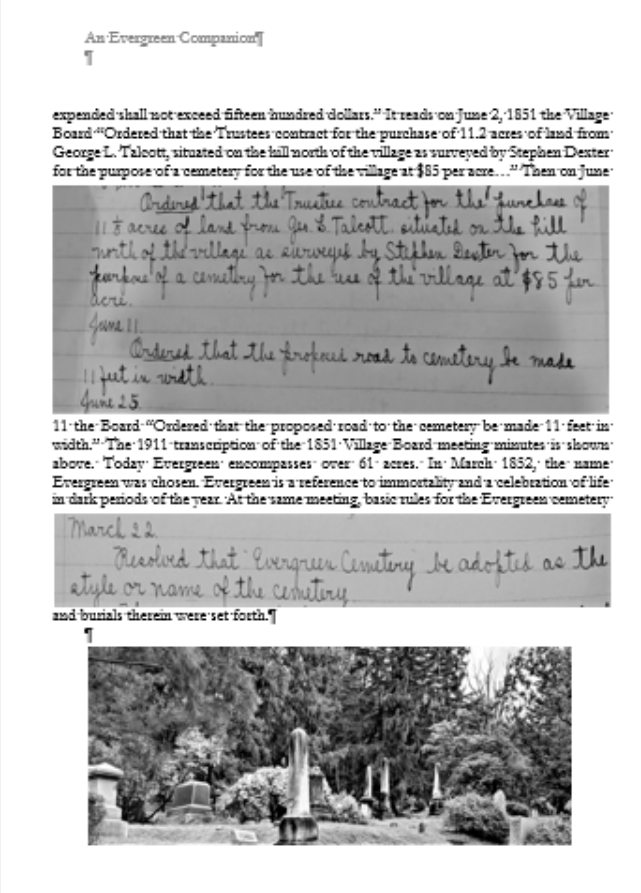 An Evergreen Companion¶
¶
expended shall not exceed fifteen hundred dollars.” It reads on June 2, 1851 the Village
Board “Ordered that the Trustees contract for the purchase of 11.2 acres of land from
George L. Talcott, situated on the hill north of the village as surveyed by Stephen Dexter
for the purpose of a cemetery for the use of the village at $85 per acre…” Then on June
Ordered that the Trustees contract for the purchase of
acres of land from Geo. L. Talcott. situated on the hill
north of the village as surveyed by Stephen Dexter for the
purpose of a cemetery for the use of the village at $85 per
acre.
June 11.
Ordered that the proposed road to cemetery be made
11 feet in width.
June 25.
11 the Board “Ordered that the proposed road to the cemetery be made 11 feet in
width.” The 1911 transcription of the 1851 Village Board meeting minutes is shown
above. Today Evergreen encompasses over 61 acres. In March 1852, the name
Evergreen was chosen. Evergreen is a reference to immortality and a celebration of life
in dark periods of the year. At the same meeting, basic rules for the Evergreen cemetery
March 22.
Resolved that "Evergreen Cemetery" be adopted as the
style or name of the cemetery
and burials therein were set forth.¶
¶